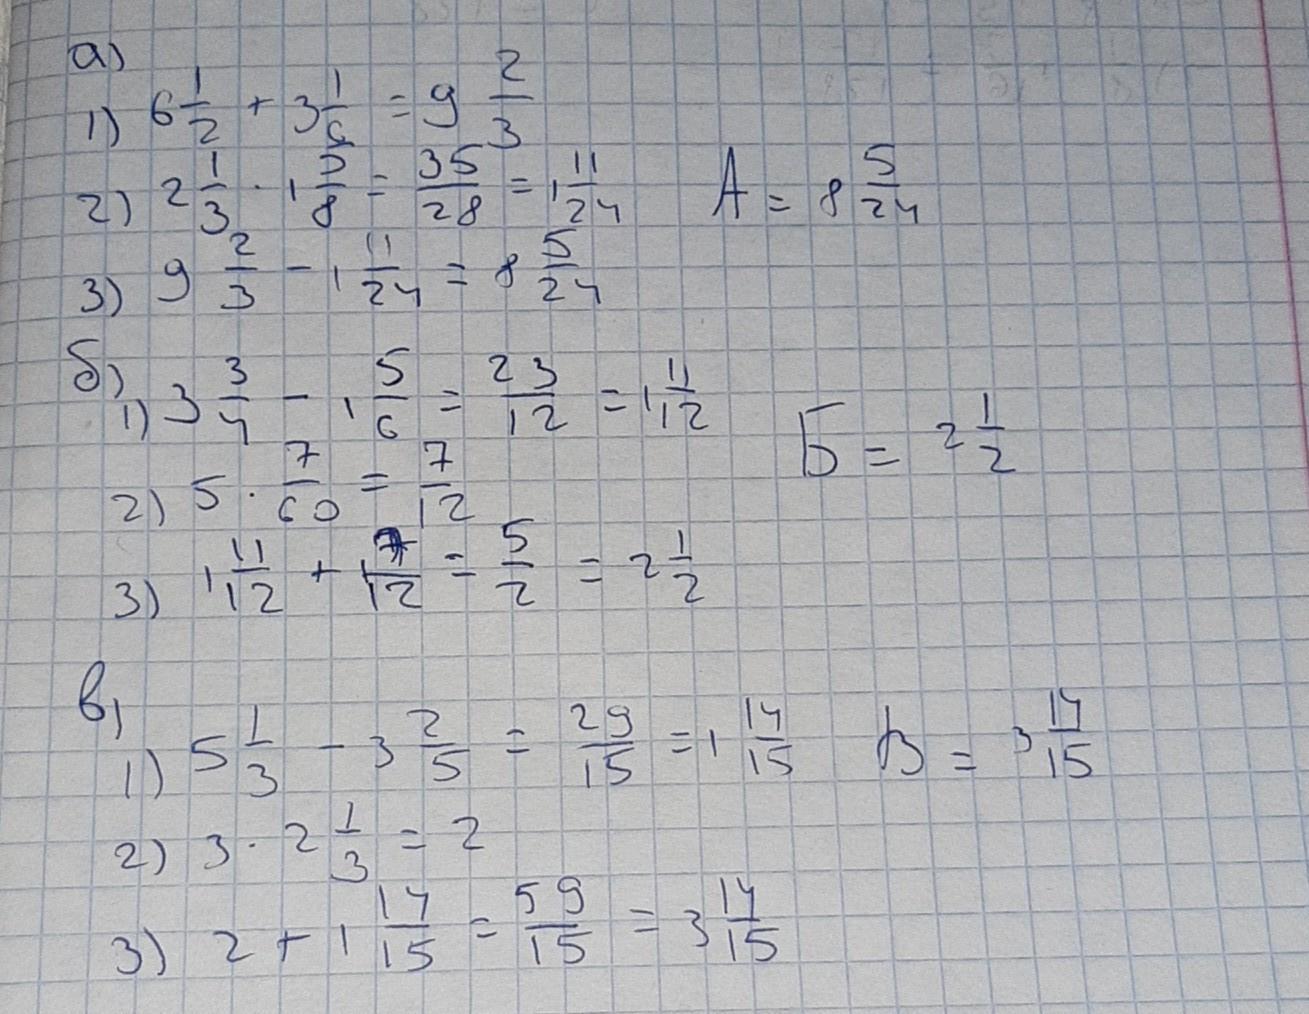 а)
1) 6 1/2 + 3 1/6 = 9 2/3
2) 2 1/3 · 1 5/8 = 35/28 = 1 11/24 А = 8 5/24
3) 9 2/3 - 1 11/24 = 8 5/24
б)
1) 3 3/4 - 1 5/6 = 23/12 = 1 11/12 Б = 2 1/2
2) 5 · 7/60 = 7/12
3) 1 11/12 + 7/12 = 5/2 = 2 1/2
в)
1) 5 1/3 - 3 2/5 = 29/15 = 1 14/15 В = 3 14/15
2) 3 · 2 1/3 = 2
3) 2 + 1 14/15 = 59/15 = 3 14/15